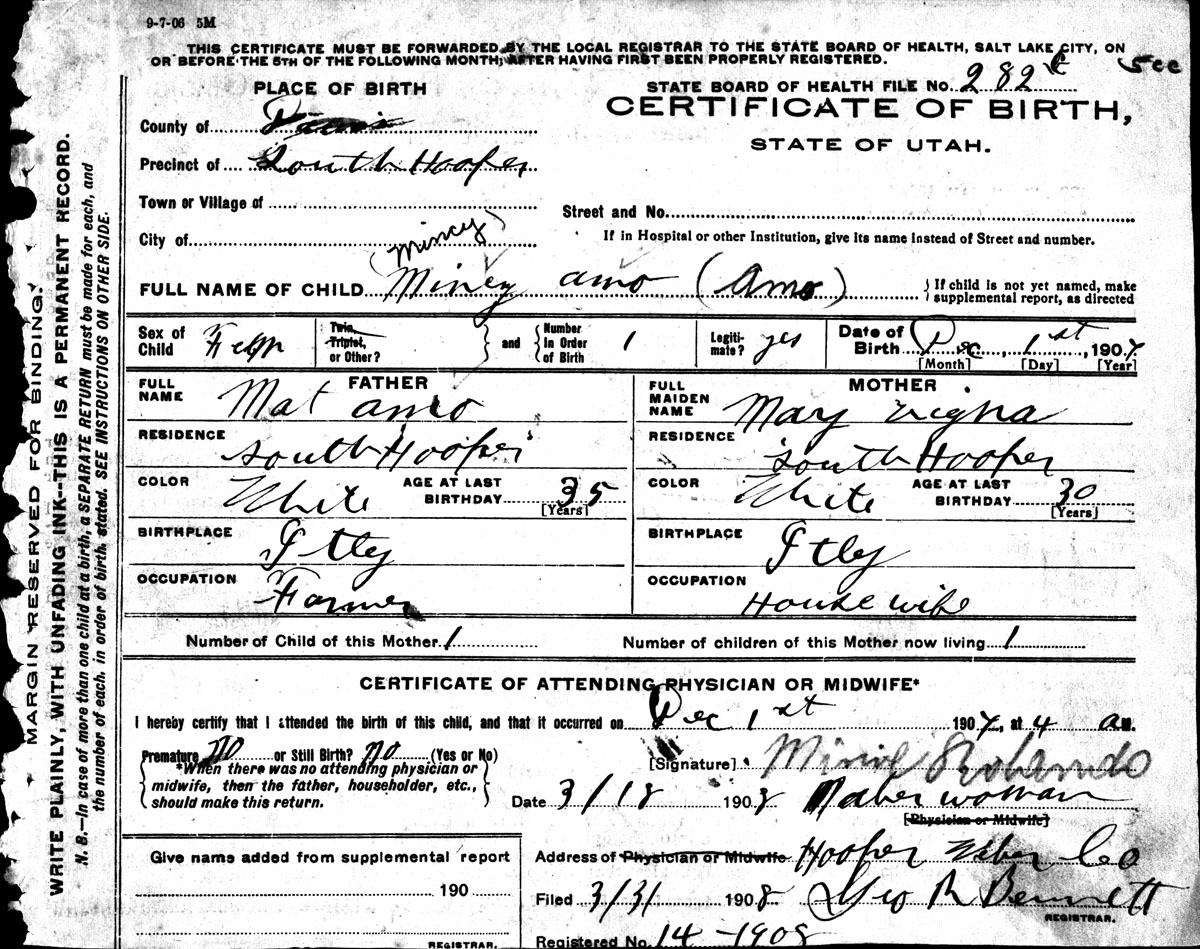 9-7-06 5M
THIS CERTIFICATE MUST BE FORWARDED BY THE LOCAL REGISTRAR TO THE STATE BOARD OF HEALTH, SALT LAKE CITY, ON
OR BEFORE THE 5TH OF THE FOLLOWING MONTH, AFTER HAVING FIRST BEEN PROPERLY REGISTERED.
PLACE OF BIRTH
STATE BOARD OF HEALTH FILE No. 282
CERTIFICATE OF BIRTH,
STATE OF UTAH.
County of Davis
Precinct of South Hooper
Town or Village of
Street and No.
City of
If in Hospital or other Institution, give its name instead of Street and number.
(Mincy)
FULL NAME OF CHILD Miney amo (Amo)
If child is not yet named, make
supplemental report, as directed
Sex of Child Fem
Twin, Triplet, or Other?
and
Number in Order of Birth 1
Legitimate? yes
Date of Birth Dec, 1st, 1907
[Month] [Day] [Year]
FATHER
FULL NAME Mat amo
RESIDENCE South Hooper
COLOR White
AGE AT LAST BIRTHDAY 35
[Years]
BIRTHPLACE Itley
OCCUPATION Farmer
MOTHER
FULL MAIDEN NAME Mary
RESIDENCE South Hooper
COLOR White
AGE AT LAST BIRTHDAY 30
[Years]
BIRTHPLACE Itley
OCCUPATION House wife
Number of Child of this Mother 1
Number of children of this Mother now living 1
CERTIFICATE OF ATTENDING PHYSICIAN OR MIDWIFE*
I hereby certify that I attended the birth of this child, and that it occurred on Dec 1st 1907, at 4 am.
Premature? No or Still Birth? No (Yes or No)
*When there was no attending physician or
midwife, then the father, householder, etc.,
should make this return.
[Signature] Rolando
Date 3/18 1908
Naber woman
[Physician or Midwife]
Give name added from supplemental report
190
REGISTRAR.
Address of Physician or Midwife Hooper Weber Co
Filed 3/31 1908 Geo R Bennett
REGISTRAR.
Registered No. 14-1908
MARGIN RESERVED FOR BINDING.
WRITE PLAINLY, WITH UNFADING INK--THIS IS A PERMANENT RECORD.
N. B.—In case of more than one child at a birth, a SEPARATE RETURN must be made for each, and
the number of each, in order of birth, stated. SEE INSTRUCTIONS ON OTHER SIDE.